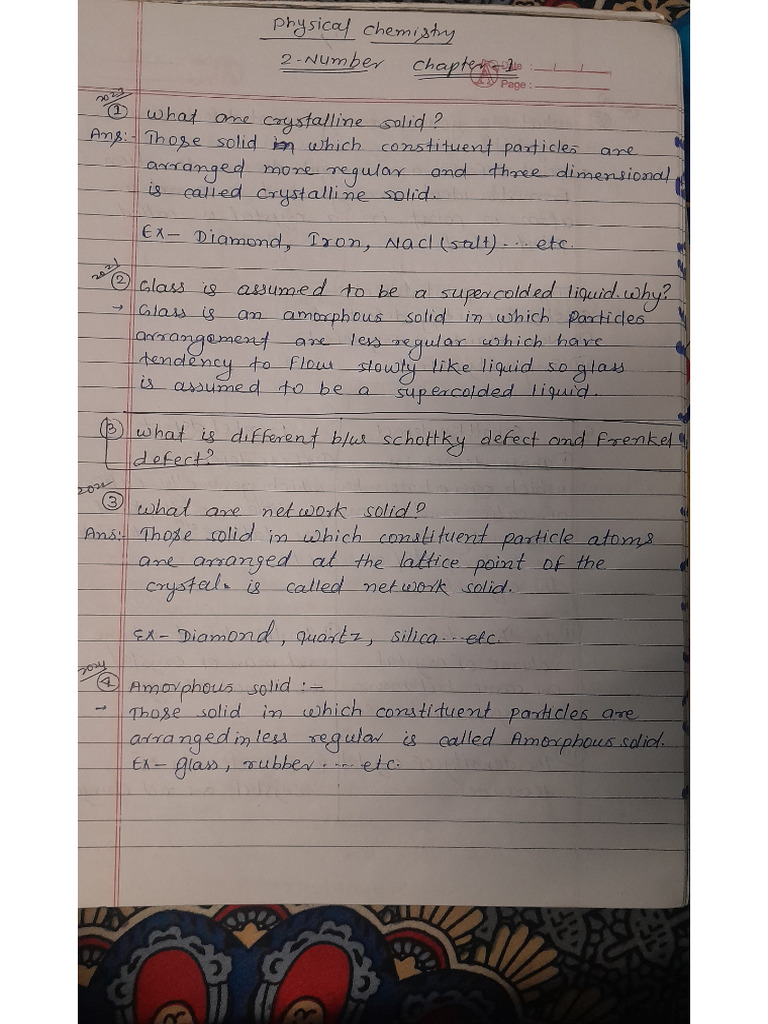 Physical Chemistry
2-Number Chapter-1
Date : / /
Page :
2023
① What are crystalline solid?
Ans:- Those solid in which constituent particles are
arranged more regular and three dimensional
is called crystalline solid.
Ex- Diamond, Iron, Nacl (salt).... etc.
2021
② Glass is assumed to be a supercolded liquid. why?
→ Glass is an amorphous solid in which particles
arrangement are less regular which have
tendency to flow slowly like liquid so glass
is assumed to be a supercolded liquid.
③ What is different b/w schottky defect and Frenkel
defect?
③ What are network solid?
Ans:- Those solid in which constituent particle atoms
are arranged at the lattice point of the
crystal. is called network solid.
Ex- Diamond, quartz, silica...etc.
2024
④ Amorphous solid :-
→ Those solid in which constituent particles are
arranged in less regular is called Amorphous solid.
Ex- glass, rubber.....etc.